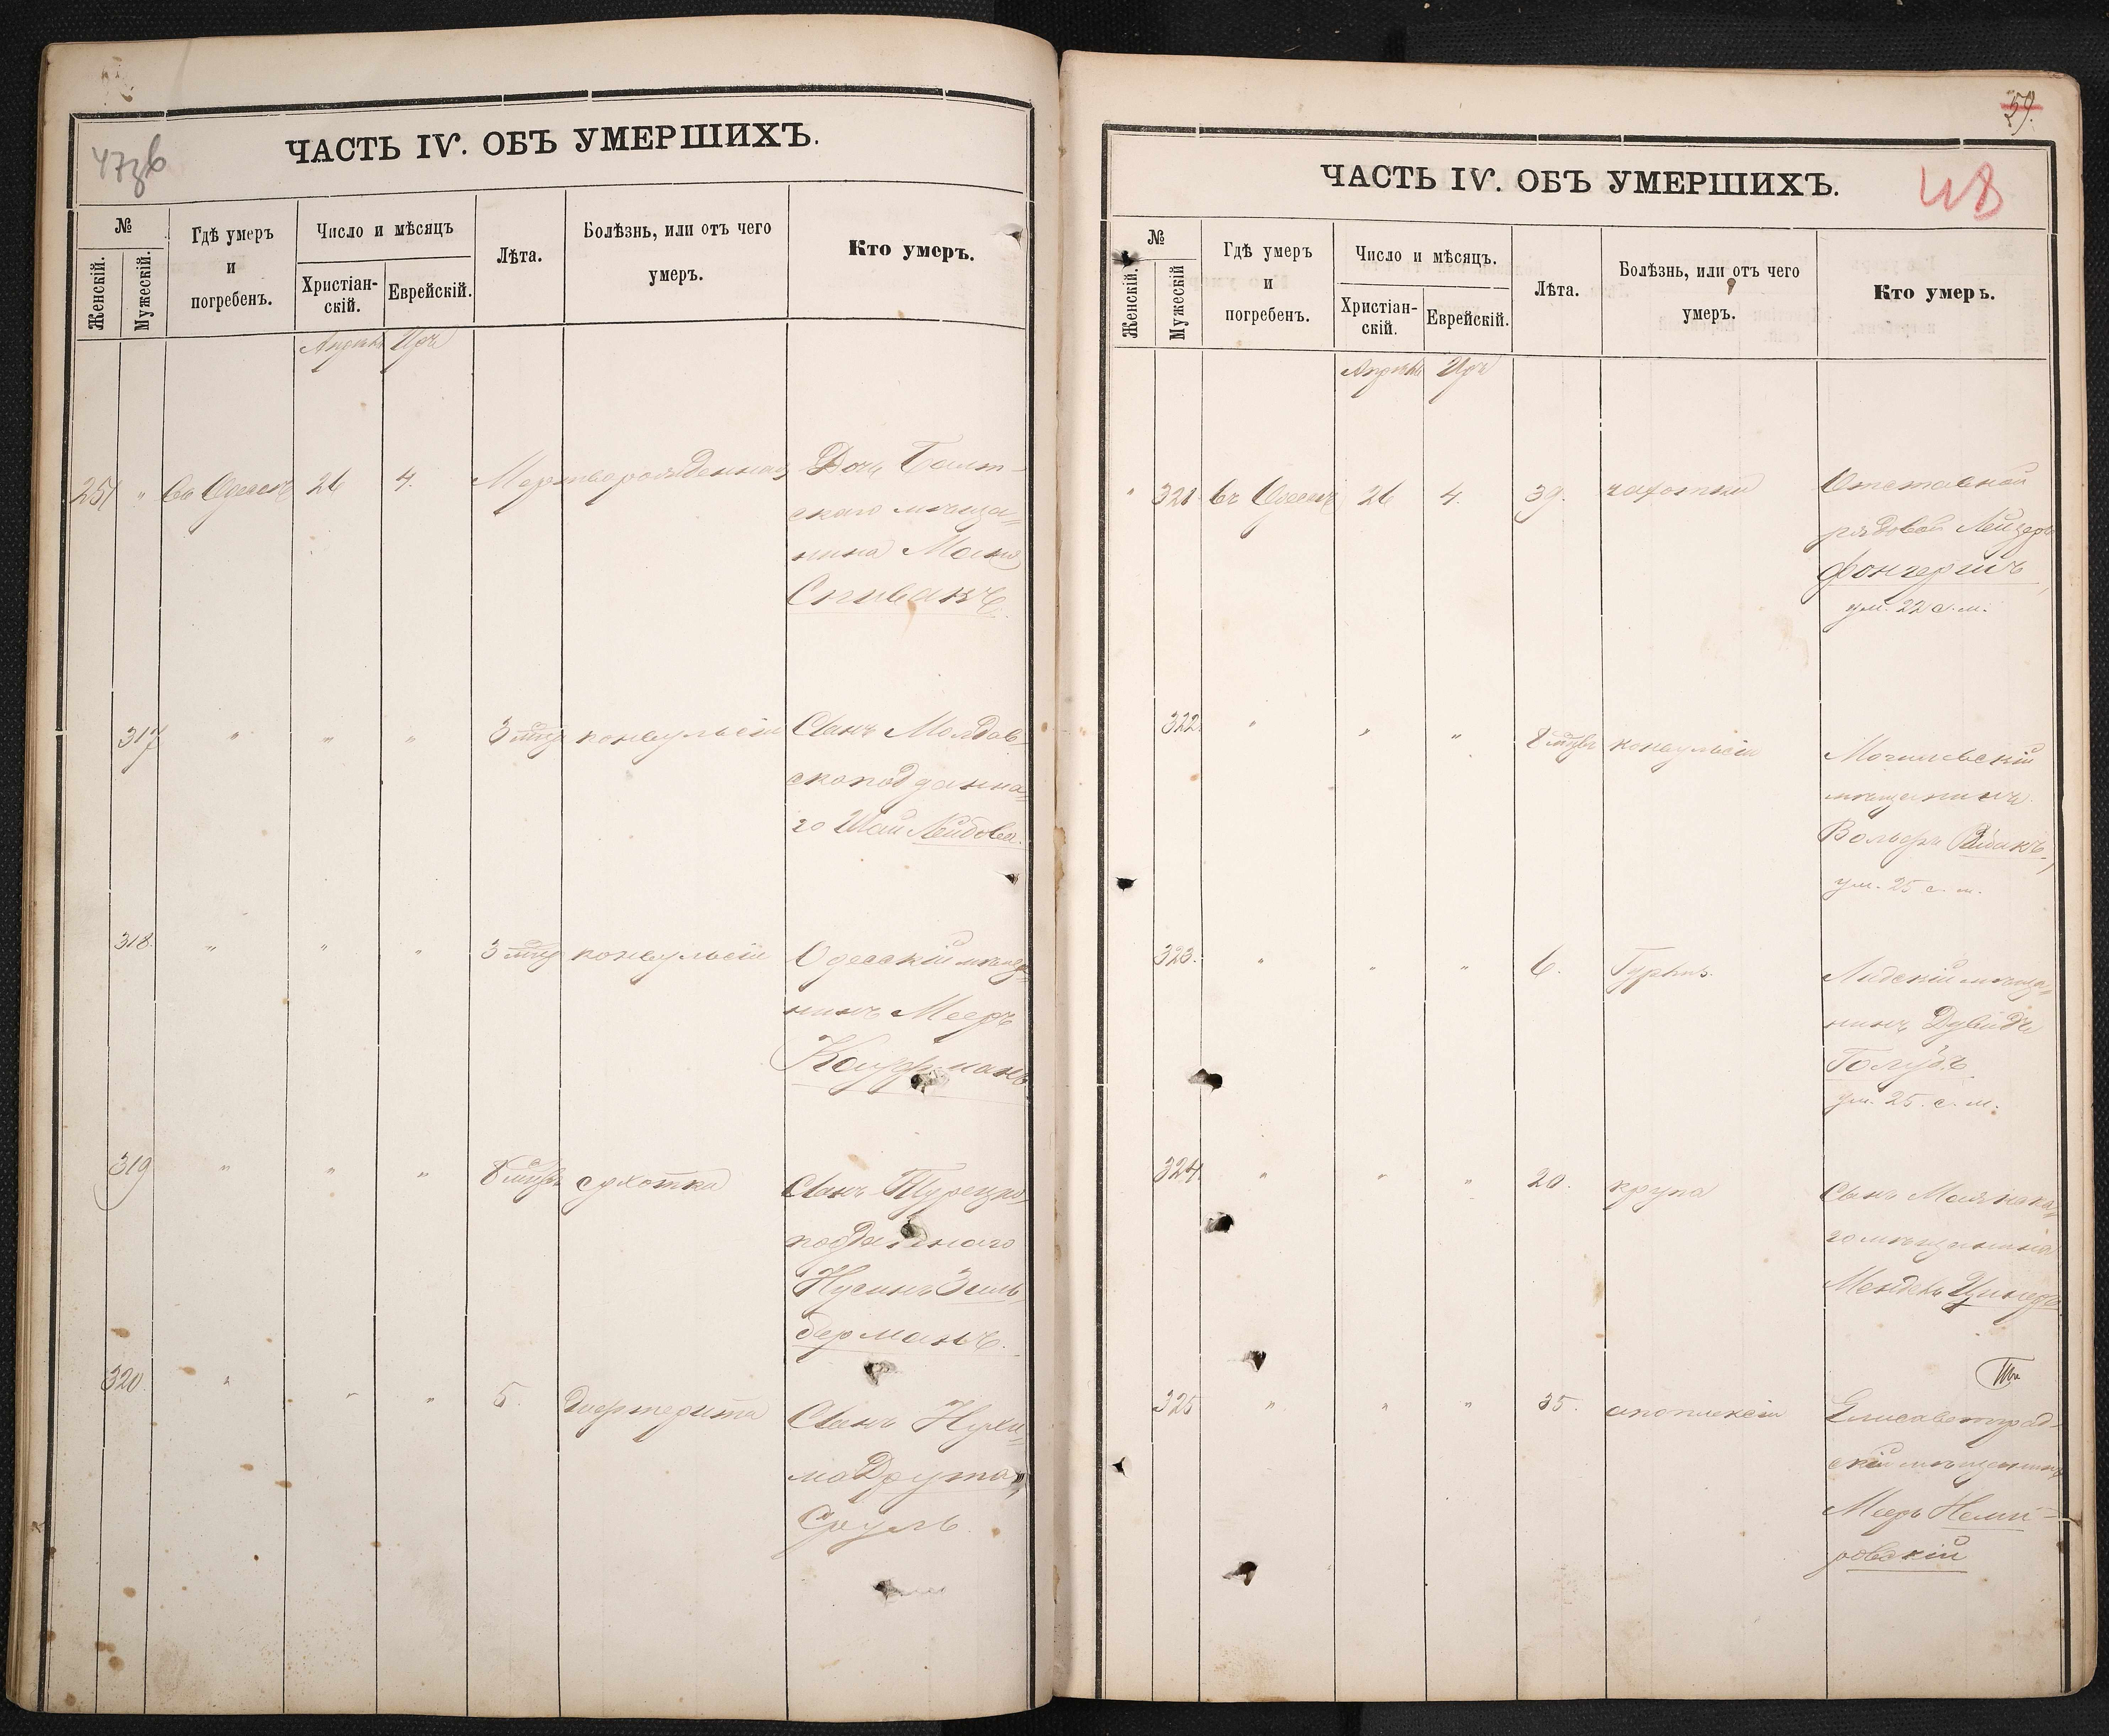 47зв
ЧАСТЬ IV. ОБЪ УМЕРШИХЪ.
№
Женскій.
Мужескій.
Гдѣ умеръ
и
погребенъ.
Число и мѣсяцъ
Христіан-
скій.
Еврейскій.
Лѣта.
Болѣзнь, или отъ чего
умеръ.
Кто умеръ.
Апрѣль Иръ
251 " въ Одессѣ 26 4. Мертворожденная Дочь Балт-
скаго мѣща=
нина
Спивакъ.
317 " " " 3 конвульсіи Сынъ Молдав-
скоподданна=
го Шаи Лейбова.
318. " " " 3 конвульсіи Одесскій мѣща=
нинъ Мееръ
Кауфманъ
319 " " " 8 сухотка Сынъ Турецко-
подданнаго
Нусинъ Зиль-
берманъ.
320 " " " 5. дифтерита Сынъ Нухи=
ма Друта,
Сруль.
59.
48
ЧАСТЬ IV. ОБЪ УМЕРШИХЪ.
№
Женскій.
Мужескій
Гдѣ умеръ
и
погребенъ.
Число и мѣсяцъ.
Христіан-
скій.
Еврейскій.
Лѣта.
Болѣзнь, или отъ чего
умеръ.
Кто умеръ.
Апрѣль Иръ
" 321 въ Одессѣ 26 4. 39. чахотки Отставной
рядовой Лейзеръ
ум. 22 с. м.
322. " " " 8 конвульсіи Могилевскій
мѣщанинъ
Вольфъ
ум. 25 с. м.
323. " " " 6. Лидскій мѣща=
нинъ Давидъ
Голубъ
ум. 25. с. м.
324. " " " 20. крупа Сынъ Маякска=
го мѣщанина
Мендель
325 " " " 35. апоплексіи Елисаветград-
скій мѣщанинъ
Мееръ Неми-
ровскій